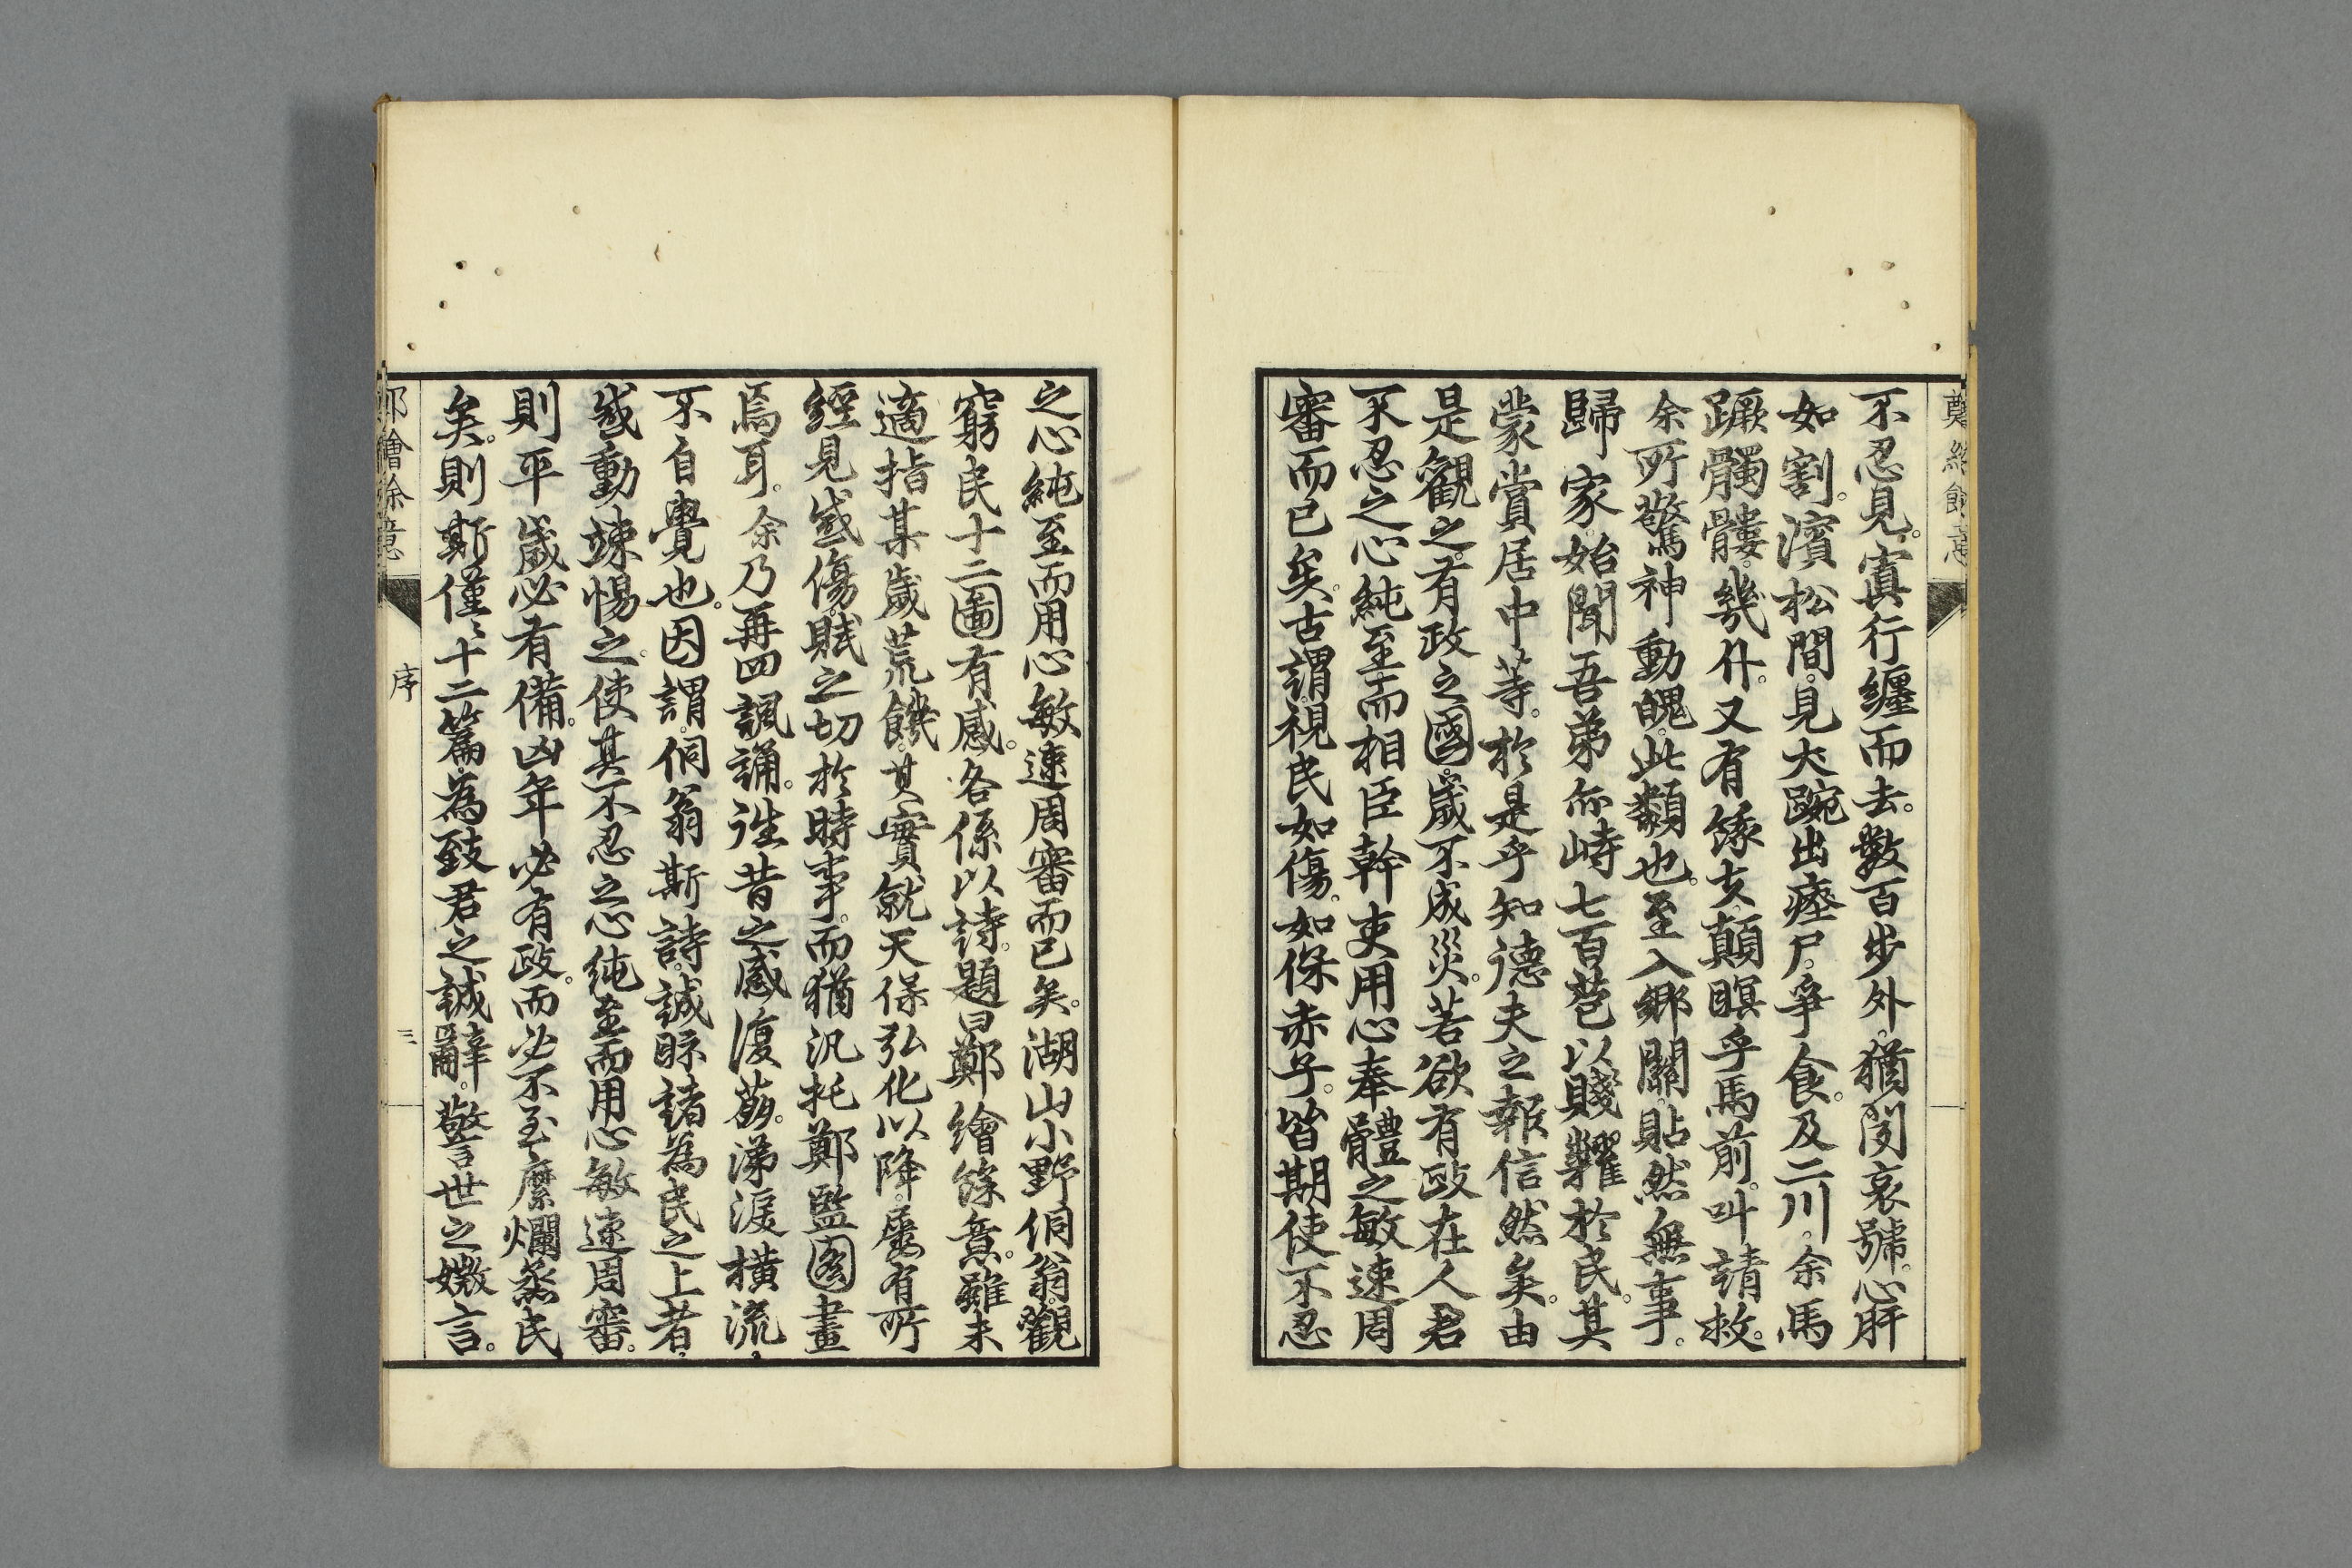 鄭繪餘意
不忍見。寘行纏而去。數百步外。猶聞哀號。心肝
如割。濱松間。見犬踠出瘞尸。爭食。及二川。余馬
蹶髑髏。幾仆。又有餓夫。顛瞑乎馬前。叫請救。
余所驚神動魄。此類也。至入鄉關。貼然無事。
歸家。始聞吾弟亦峙七百苞以賤糶於民。其
蒙賞居中等。於是乎知德夫之報信然矣。由
是觀之。有政之國。歲不成災。若欲有政在人君
不忍之心純至而相臣幹吏用心奉體之敏速周
審而已矣。古謂。視民如傷。如保赤子。皆期使不忍
之心純至而用心敏速周審而已矣。湖山小野侗翁。觀
窮民十二圖有感。各係以詩。題曰鄭繪餘意。雖未
適指某歲荒饑。其實就天保弘化以降。屢有所
經見感傷。賦之切於時事。而猶汎托鄭監圖畫
焉耳。余乃再四諷誦。往昔之感復萌。涕淚橫流。
不自覺也。因謂。侗翁斯詩。誠眎諸為民之上者。
感動竦惕之。使其不忍之心純至而用心敏速周審。
則平歲必有備。凶年必有政。而必不至糜爛烝民
矣。則斯僅〻十二篇。為致君之誠辭。警世之媺言。
鄭繪餘意
序
三